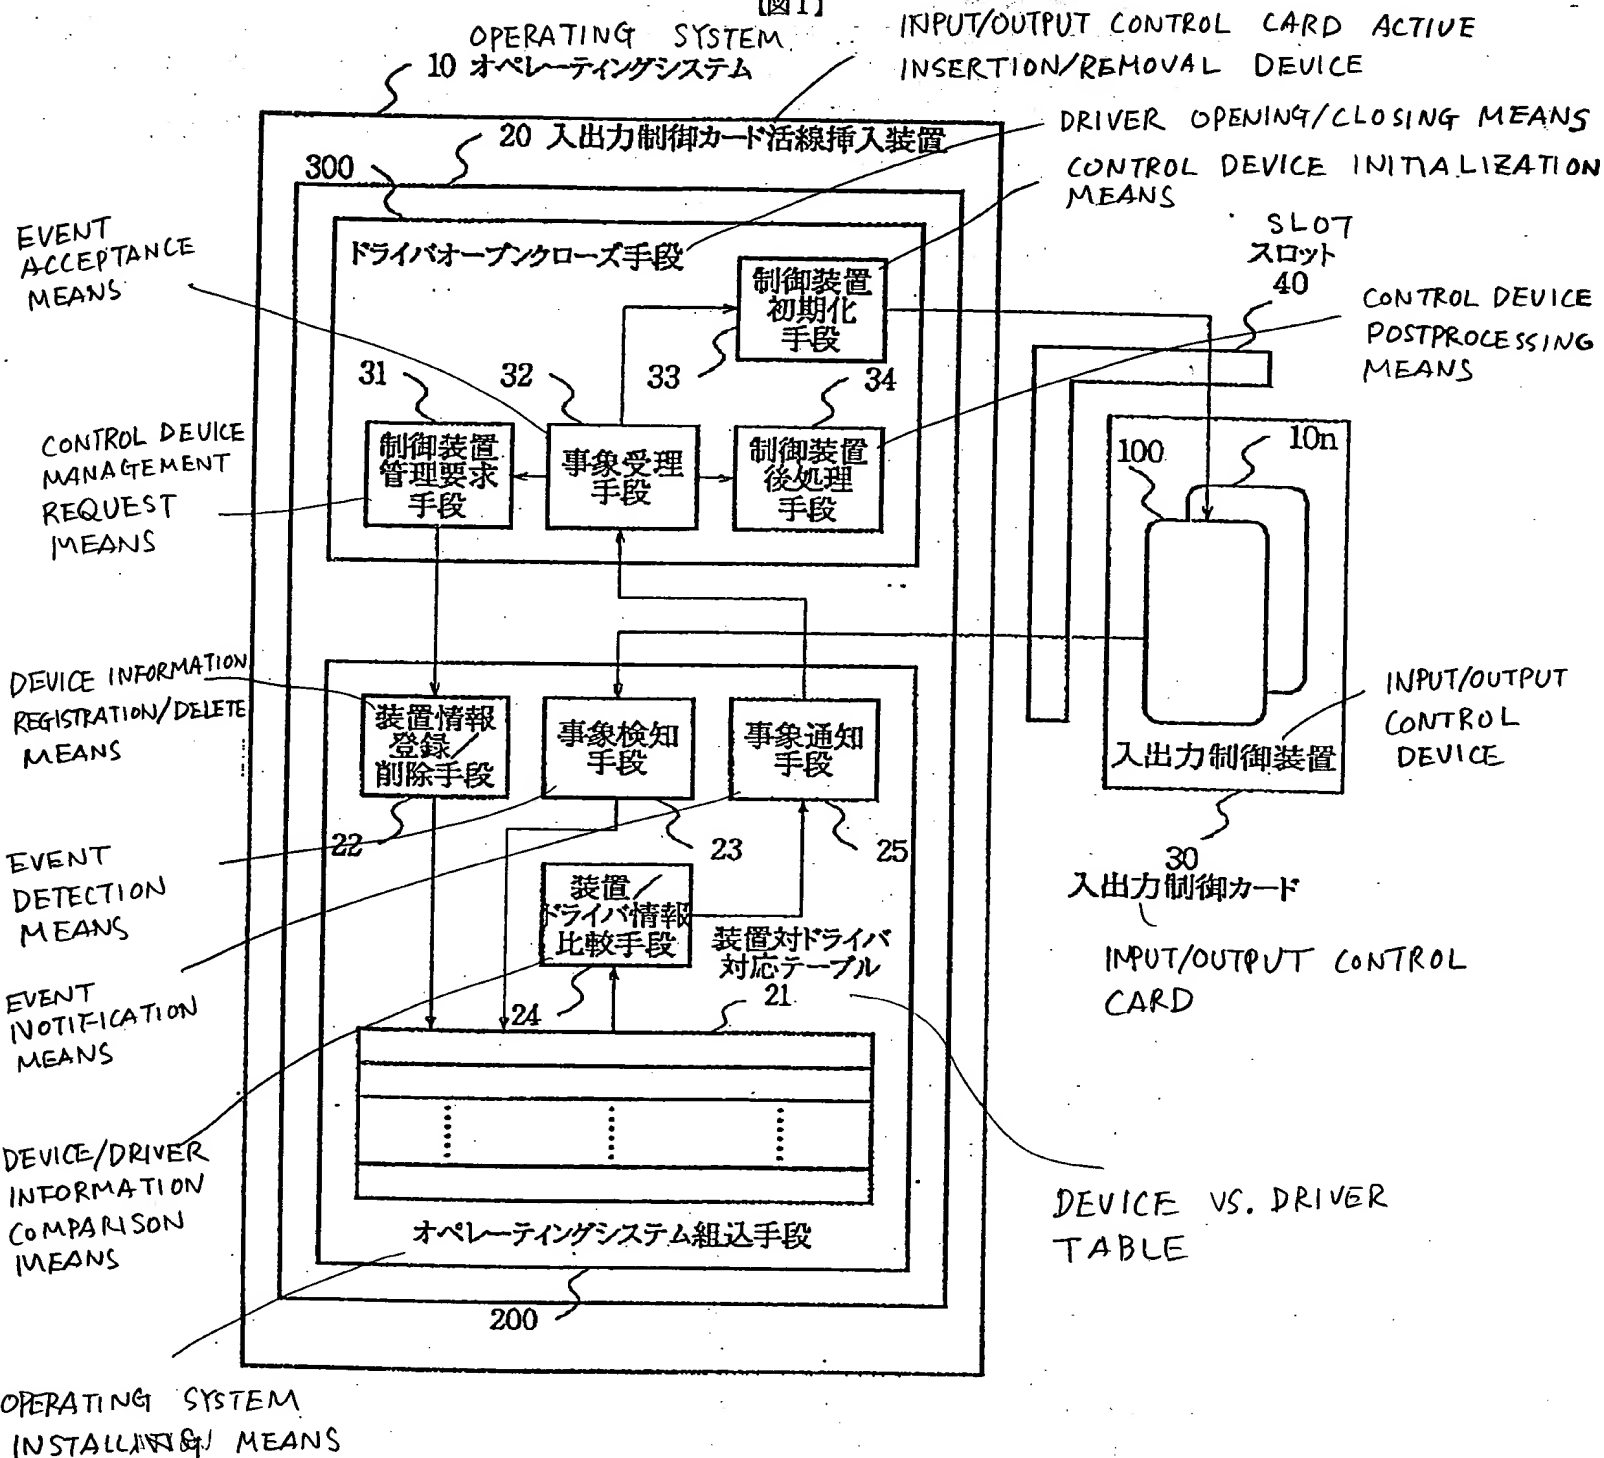 【図1】
OPERATING SYSTEM
10 オペレーティングシステム
INPUT/OUTPUT CONTROL CARD ACTIVE
INSERTION/REMOVAL DEVICE
20 入出力制御カード活線挿入装置
DRIVER OPENING/CLOSING MEANS
CONTROL DEVICE INITIALIZATION
MEANS
300
EVENT
ACCEPTANCE
MEANS
ドライバオープンクローズ手段
制御装置
初期化
手段
33
SLOT
スロット
40
CONTROL DEVICE
POSTPROCESSING
MEANS
31
32
34
CONTROL DEVICE
MANAGEMENT
REQUEST
MEANS
制御装置
管理要求
手段
事象受理
手段
制御装置
後処理
手段
100
10n
DEVICE INFORMATION
REGISTRATION/DELETE
MEANS
装置情報
登録/
削除手段
事象検知
手段
事象通知
手段
入出力制御装置
INPUT/OUTPUT
CONTROL
DEVICE
22
23
25
30
入出力制御カード
INPUT/OUTPUT CONTROL
CARD
EVENT
DETECTION
MEANS
装置/
ドライバ情報
比較手段
24
装置対ドライバ
対応テーブル
21
EVENT
NOTIFICATION
MEANS
DEVICE/DRIVER
INFORMATION
COMPARISON
MEANS
DEVICE VS. DRIVER
TABLE
オペレーティングシステム組込手段
200
OPERATING SYSTEM
INSTALLING MEANS